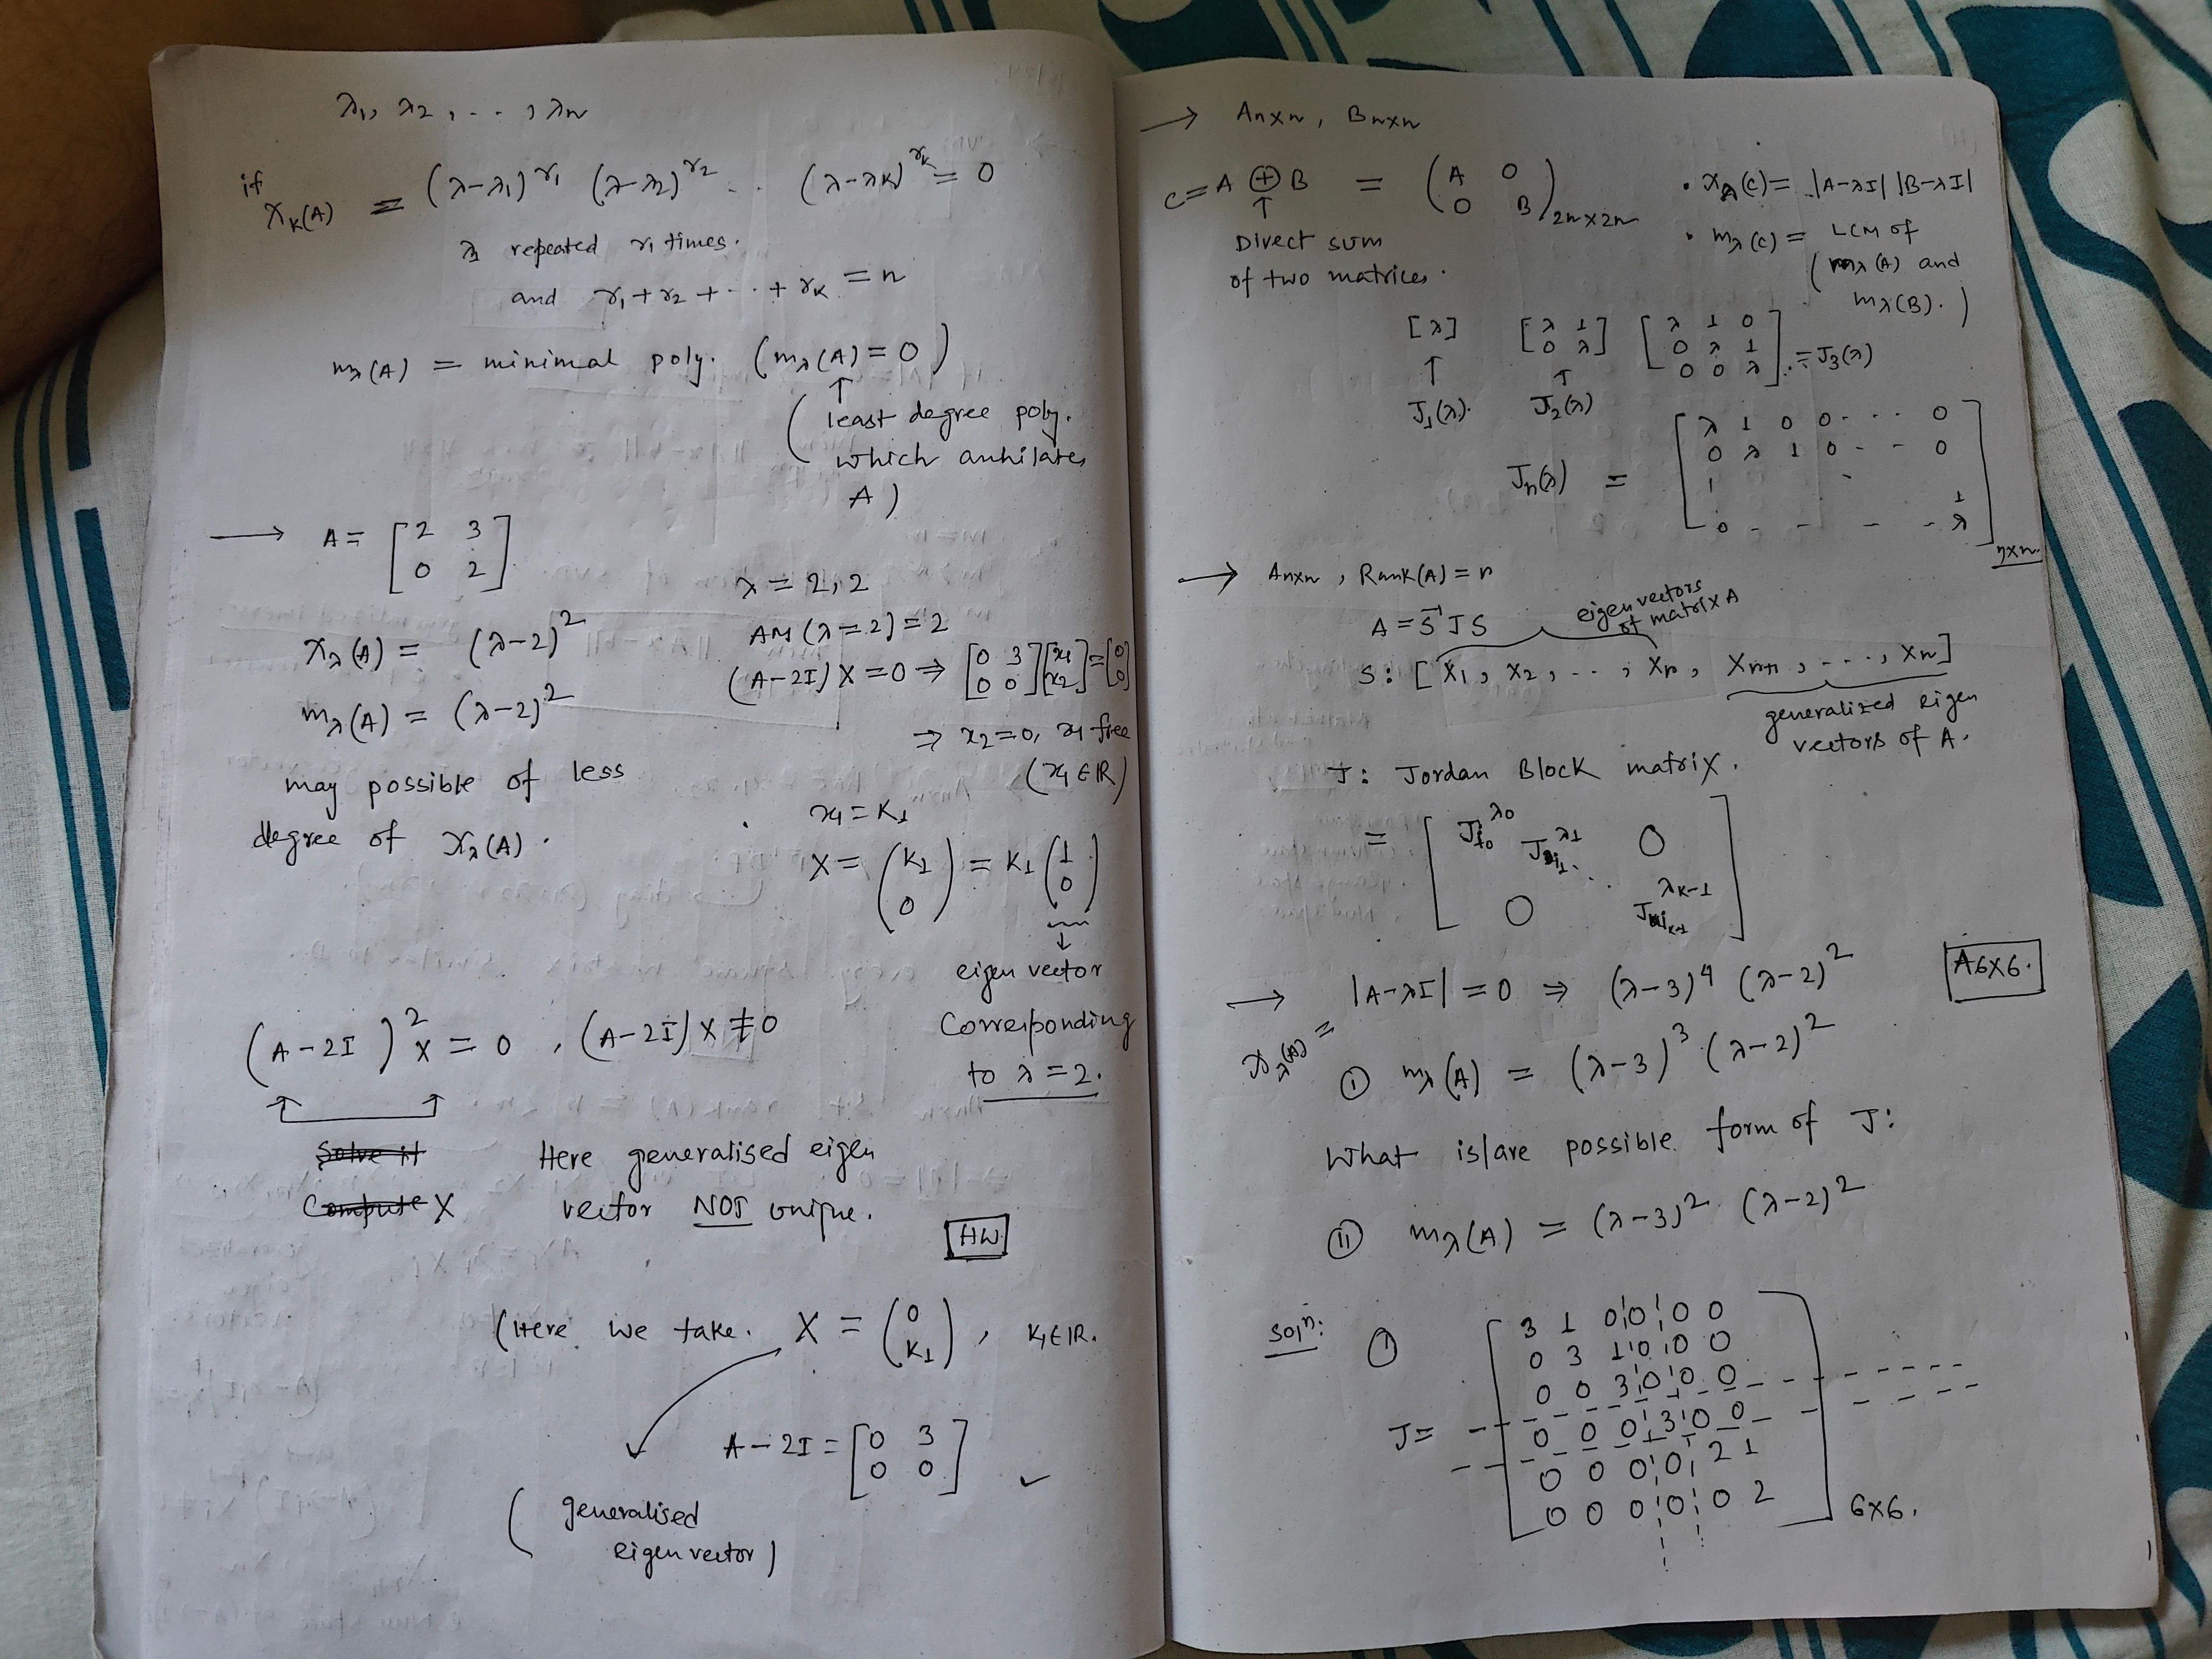 λ₁, λ₂, . . . , λn
if χ_K(A) = (λ-λ₁)^r₁ (λ-λ₂)^r₂ . . (λ-λK)^rK = 0
λ₁ repeated r₁ times.
and r₁ + r₂ + . . . + rK = n
mλ(A) = minimal poly. (mλ(A) = 0)
↑
( least degree poly.
which anhilates
A )
→ A = [2 3; 0 2]
λ = 2, 2
χλ(A) = (λ-2)²
AM (λ = 2) = 2
(A-2I) X = 0 ⇒ [0 3; 0 0] [x₁; x₂] = [0; 0]
mλ(A) = (λ-2)²
⇒ x₂ = 0, x₁ free
(x₁ ∈ IR)
may possible of less
degree of χλ(A) .
x₁ = K₁
X = (K₁; 0) = K₁ (1; 0)
↓
eigen vector
Corresponding
to λ = 2.
(A-2I)² X = 0 , (A-2I) X ≠ 0
Solve it
Compute X
Here generalised eigen
vector NOT unique.
HW
(Here we take. X = (0; K₁) , K₁ ∈ IR.
A-2I = [0 3; 0 0] ✓
( generalised
eigen vector )
→ An×n , Bn×n
C = A ⊕ B = (A 0; 0 B) 2n×2n
↑
Direct sum
of two matrices .
• χλ(C) = |A-λI| |B-λI|
• mλ(C) = LCM of
( mλ(A) and
mλ(B). )
[λ] [λ 1; 0 λ] [λ 1 0; 0 λ 1; 0 0 λ] . = J₃(λ)
↑ ↑
J₁(λ). J₂(λ)
Jn(λ) = [λ 1 0 0 . . . 0; 0 λ 1 0 - - 0; 1; 0 - - - - λ] n×n.
→ An×n , Rank(A) = r
A = S⁻¹ J S
eigen vectors
of matrix A
S : [ X₁, X₂, . . , Xr, Xr+1, - . . , Xn ]
generalized eigen
vectors of A.
J : Jordan Block matrix.
= [J_i₀^λ0 J_i₁^λ1 . . 0; 0 J_iK-1^λK-1]
→ |A-λI| = 0 ⇒ (λ-3)⁴ (λ-2)²
A6×6.
χλ(A) =
① mλ(A) = (λ-3)³ (λ-2)²
What is/are possible form of J :
⑪ mλ(A) = (λ-3)² (λ-2)²
Solⁿ: ①
J =
3 1 0 0 0 0
0 3 1 0 0 0
0 0 3 0 0 0
0 0 0 3 0 0
0 0 0 0 2 1
0 0 0 0 0 2
6×6.